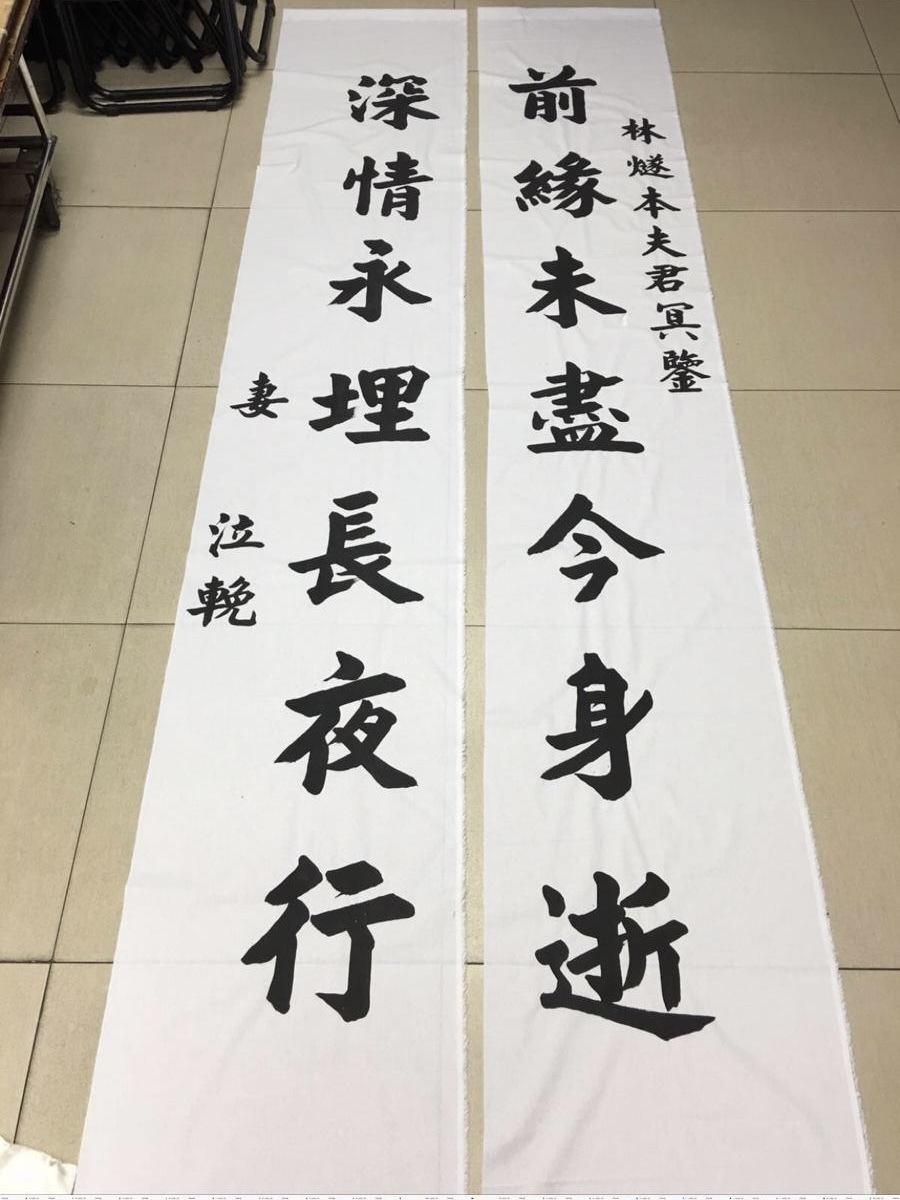 林燧本夫君冥鑒
前緣未盡今身逝
深情永埋長夜行
妻
泣輓